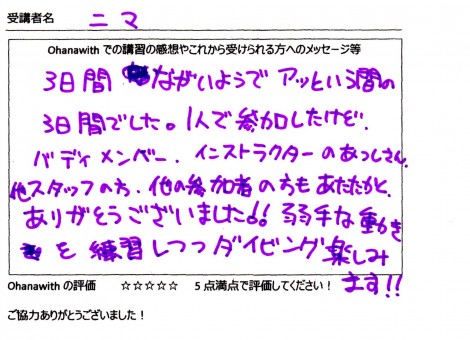 受講者名 ニマ
Ohanawith での講習の感想やこれから受けられる方へのメッセージ等
3日間 ながいようで アッという間の
3日間でした。1人で参加したけど、
バディメンバー、インストラクターのあつしさん、
他スタッフの方、他の参加者の方も あたたかく、
ありがとうございました!! 苦手な動き
を 練習しつつ ダイビング 楽しみ
ます!!
Ohanawith の評価 ☆☆☆☆☆ 5 点満点で評価してください!
ご協力ありがとうございました!